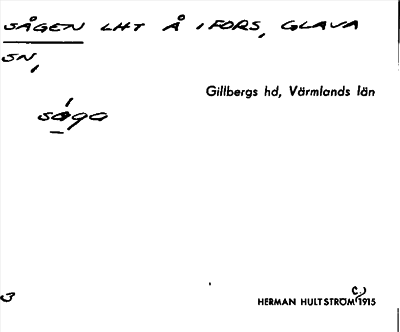 SÅGEN LHT Å I FORS, GLAVA
SN,
Gillbergs hd, Värmlands län
såga
3
HERMAN HULTSTRÖM, C.) 1915